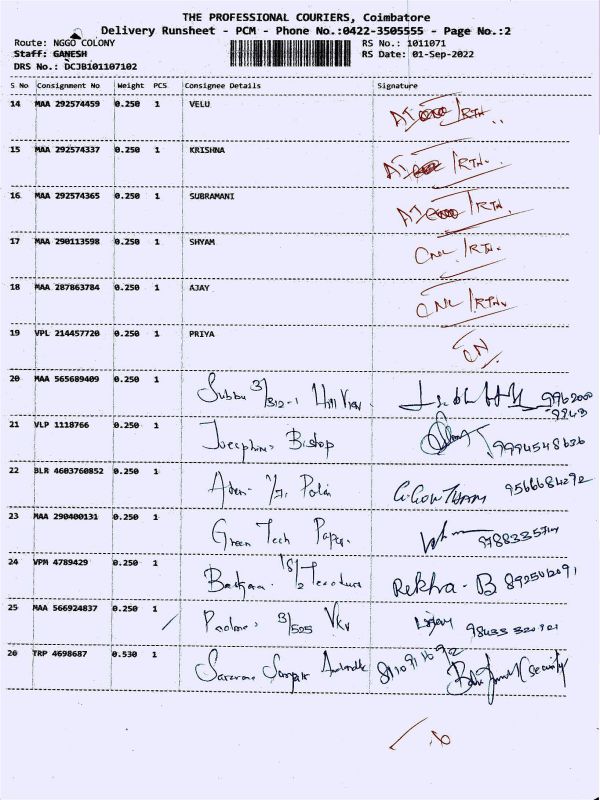 THE PROFESSIONAL COURIERS, Coimbatore
Delivery Runsheet - PCM - Phone No.:0422-3505555 - Page No.:2
Route: NGGO COLONY RS No.: 1011071
Staff: GANESH RS Date: 01-Sep-2022
DRS No.: DCJB101107102
S No Consignment No Weight PCS Consignee Details Signature
14 MAA 292574459 0.250 1 VELU /RTN.
15 MAA 292574337 0.250 1 KRISHNA /RTN.
16 MAA 292574365 0.250 1 SUBRAMANI /RTN.
17 MAA 290113598 0.250 1 SHYAM CNL /RTN.
18 MAA 287863784 0.250 1 AJAY CNL /RTN
19 VPL 214457720 0.250 1 PRIYA CN
20 MAA 565689409 0.250 1 Subbu 3/312-1 Hill View 9962000
9943
21 VLP 1118766 0.250 1 Josephine Bishop 9994548636
22 BLR 4603760852 0.250 1 G. GOWTHAM 9566684292
23 MAA 290400131 0.250 1 Green Tech Paper.
24 VPM 4789429 0.250 1 Rekha - B
25 MAA 566924837 0.250 1 3/505 VKV
26 TRP 4698687 0.530 1 (Security)